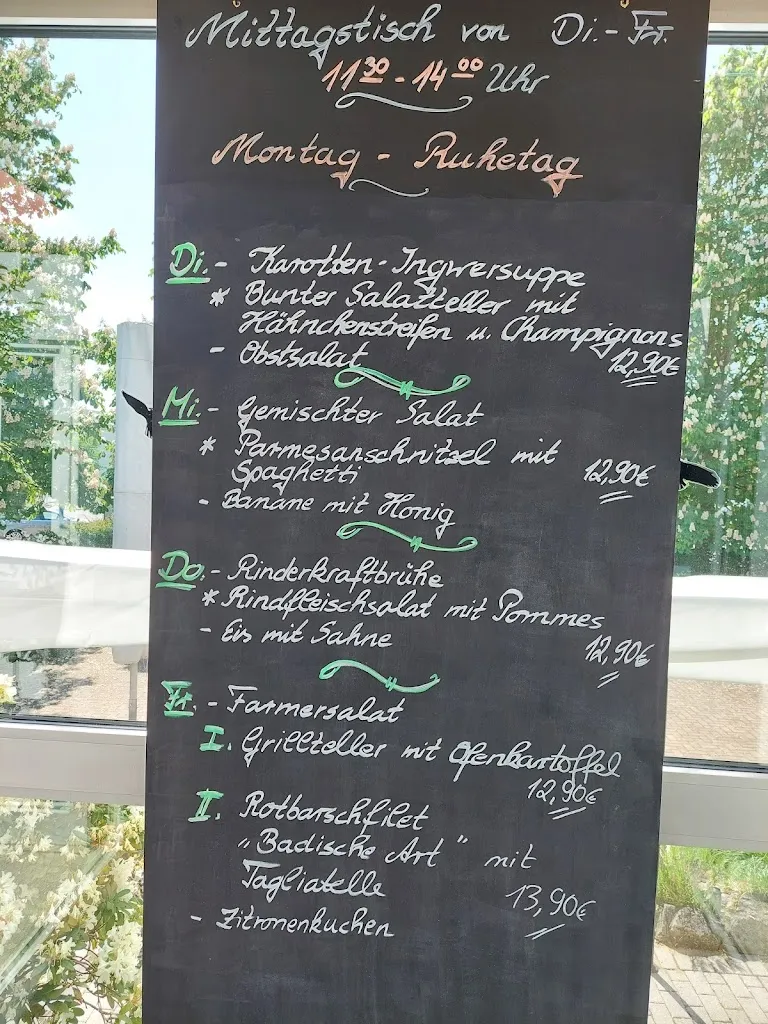 Mittagstisch von Di.- Fr.
11³⁰ - 14⁰⁰ Uhr
Montag - Ruhetag
Di. - Karotten-Ingwersuppe
* Bunter Salatteller mit
Hähnchenstreifen u. Champignons
- Obstsalat 12,90€
Mi. - Gemischter Salat
* Parmesanschnitzel mit
Spaghetti 12,90€
- Banane mit Honig
Do. - Rinderkraftbrühe
* Rindfleischsalat mit Pommes
- Eis mit Sahne 12,90€
Fr. - Farmersalat
I. Grillteller mit Ofenkartoffel
12,90€
II. Rotbarschfilet
"Badische Art" mit
Tagliatelle 13,90€
- Zitronenkuchen